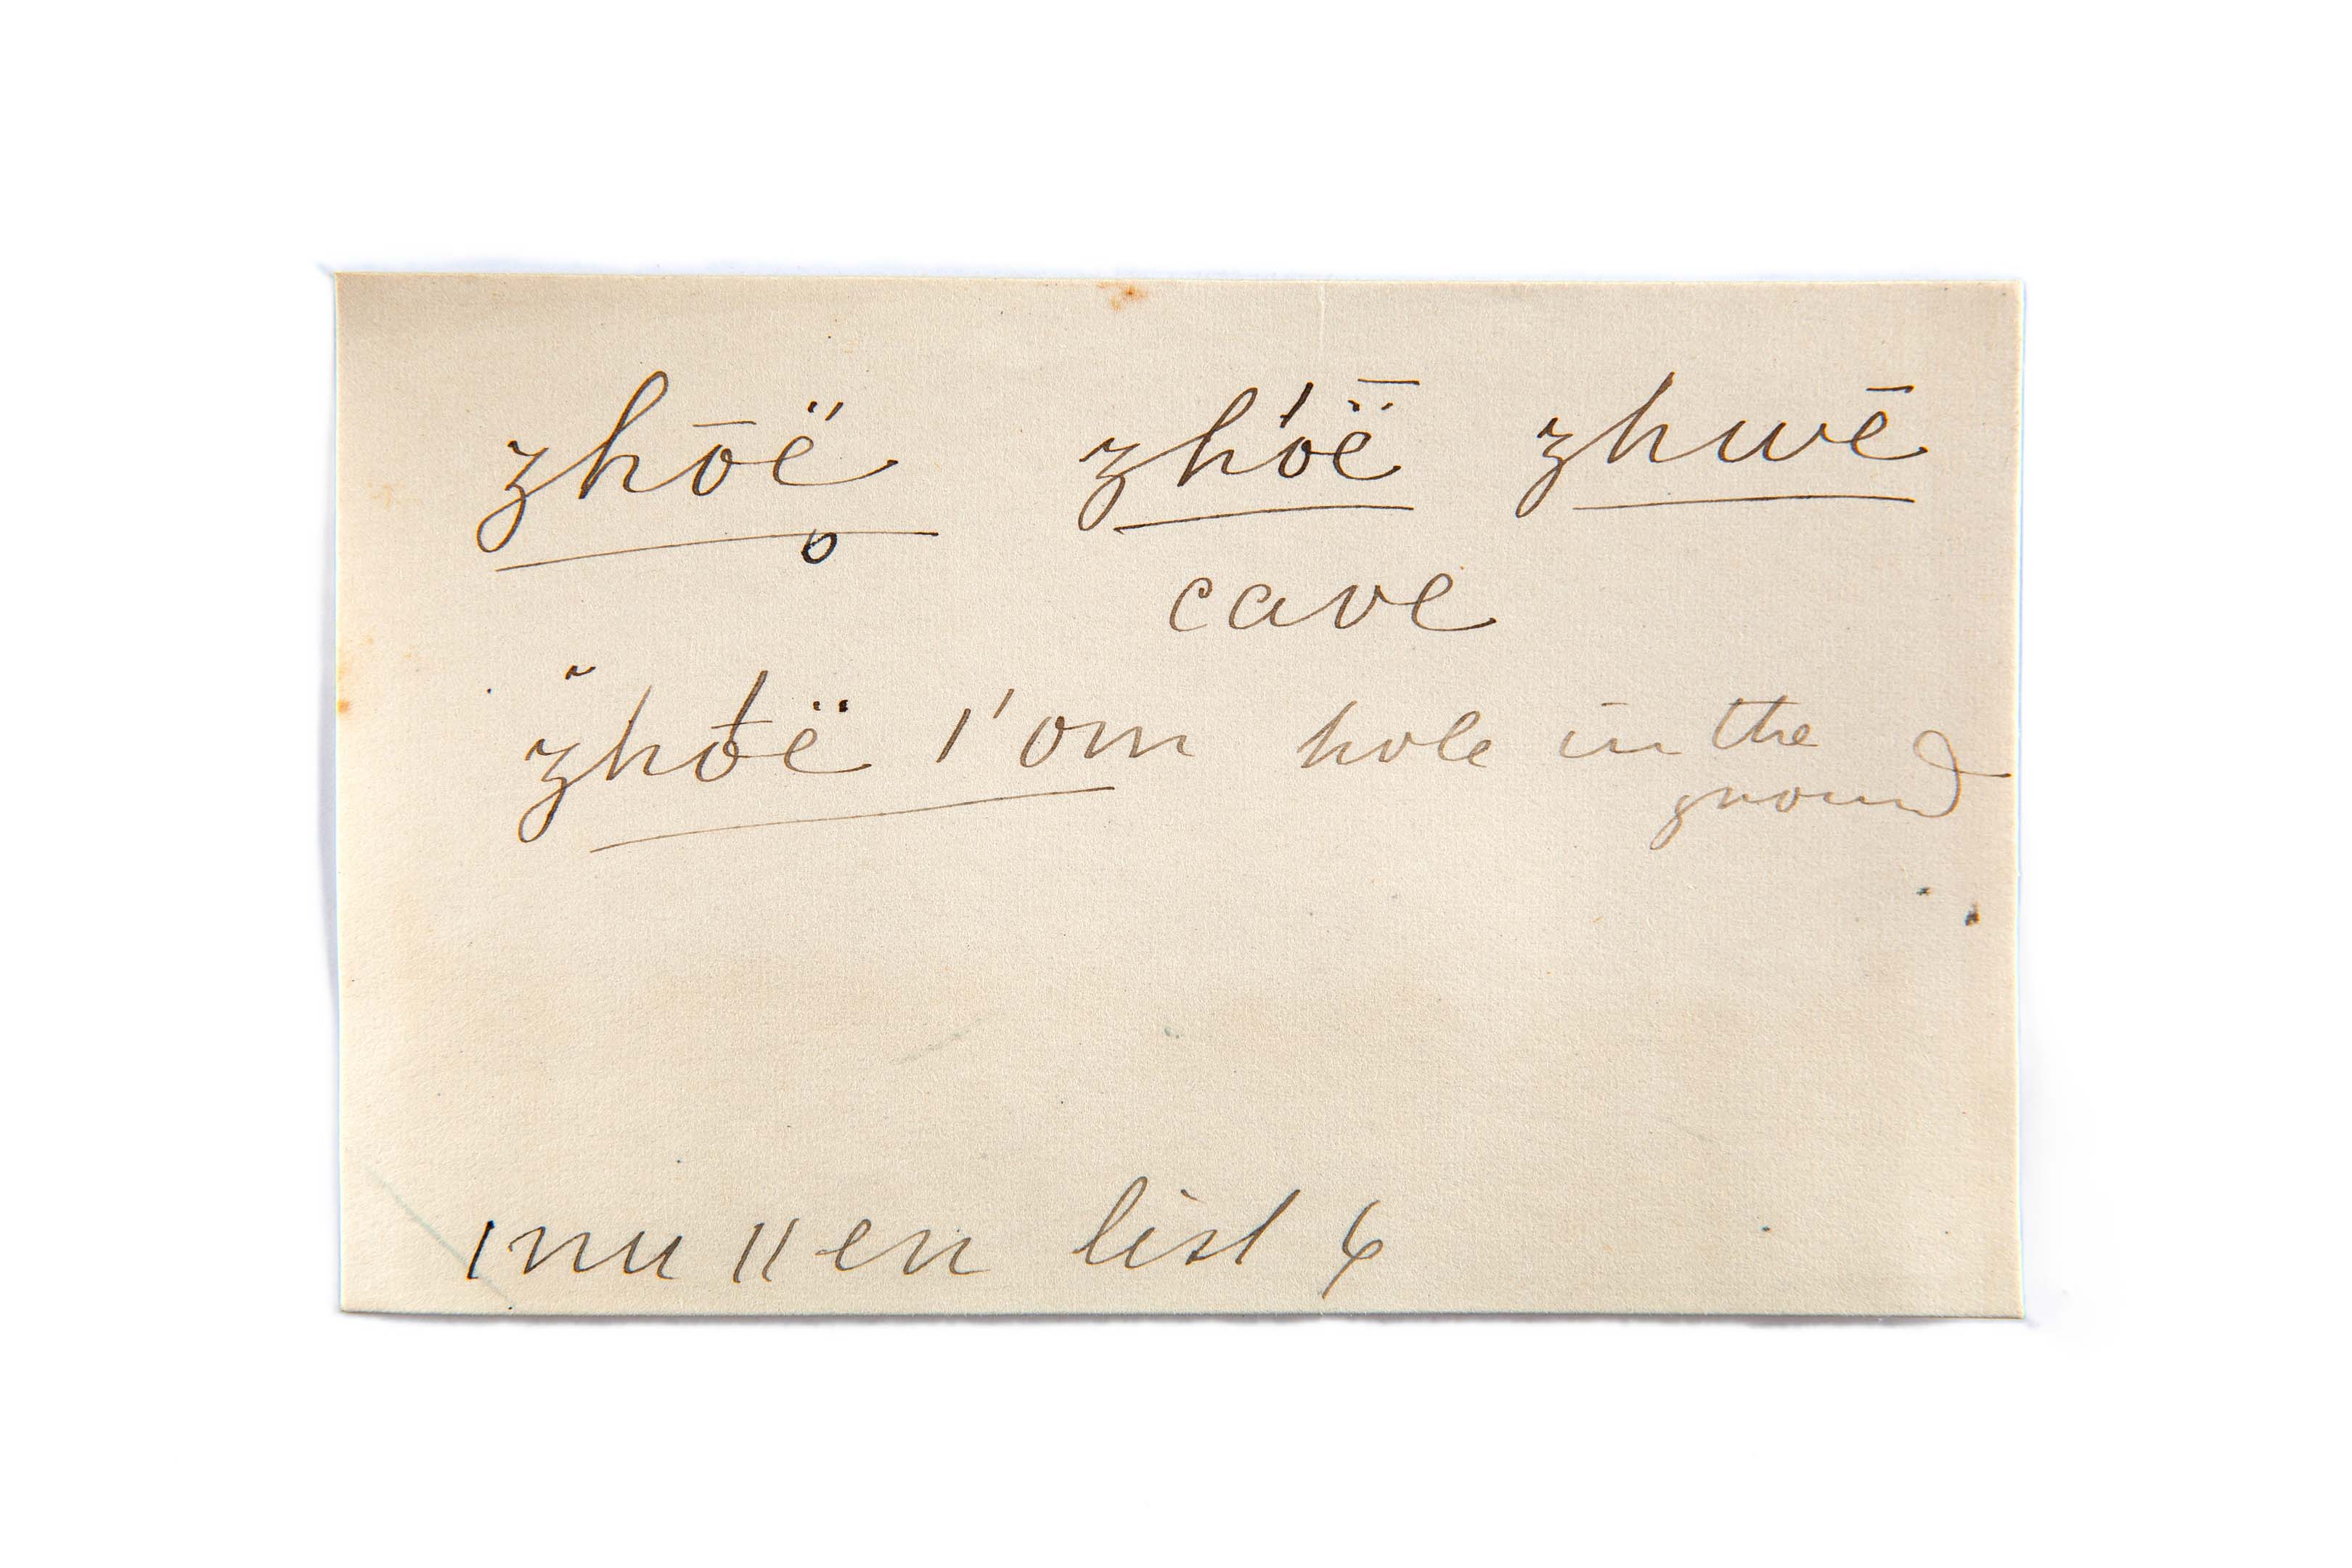 zhōë zhóë̄ zhwē
cave
z̆hṓë |'om hole in the
ground
|nu ||en list 6